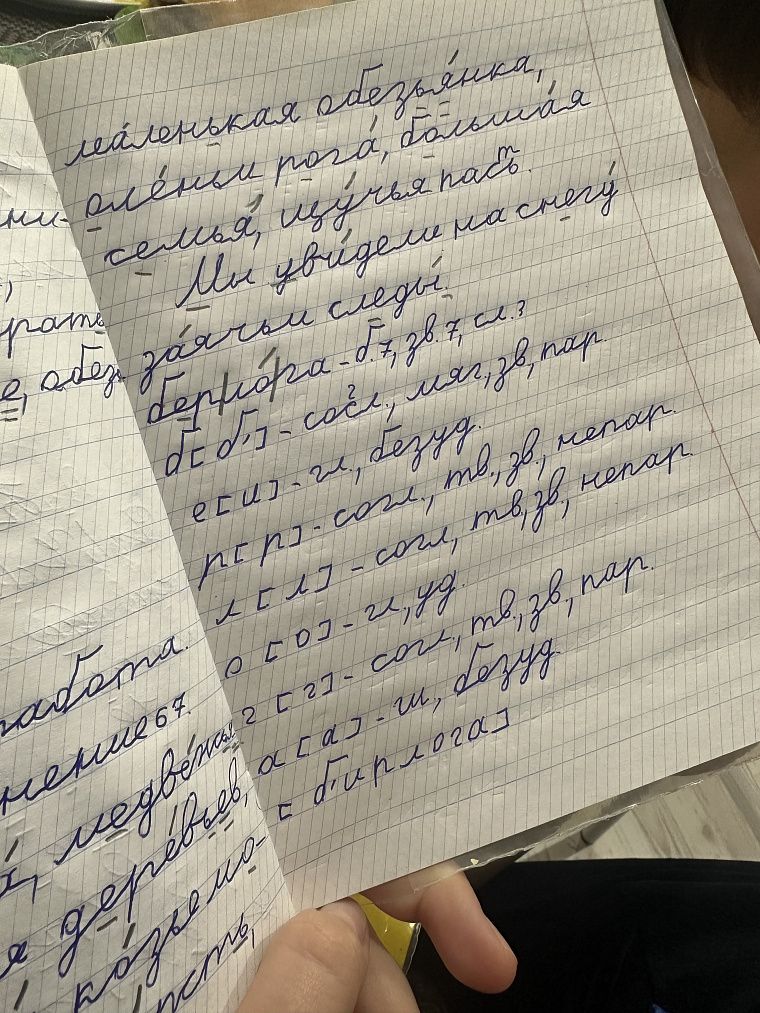 ни-
рать
е, обез
работа.
нение 67.
, медвежья
я деревьев,
козье мо-
пасть,
маленькая обезьянка,
оленьи рога, большая
семья, щучья пасть.
Мы увидели на снегу
заячьи следы.
бер|ло|га - б. 7, зв. 7, сл. 3
б [б,] - согл., мяг, зв, пар.
е [и] - гл., безуд.
р [р] - согл., тв, зв, непар.
л [л] - согл, тв, зв, непар.
о [о] - гл, уд.
г [г] - согл, тв, зв, пар.
а [а] - гл, безуд.
[б,ирлога]